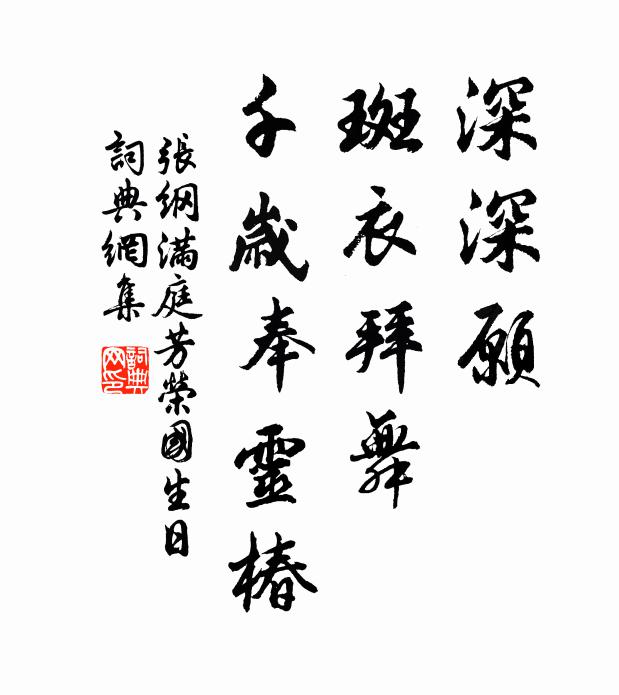 深深願
斑衣拜舞
千歲奉靈椿
張綱滿庭芳榮國生日
詞典網集
詞典網印